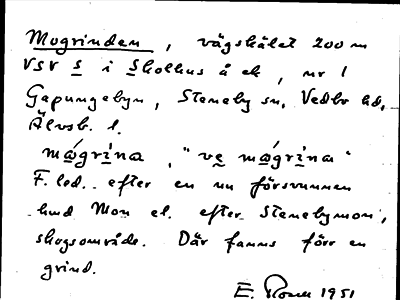 Mogrinden, vägskälet 200 m
VSV s i Skolhus å ek, nr 1
Gapungebyn, Steneby sn, Vedbo hd,
Älvsb. l.
mógrina, "ve mógrina"
F. led. efter en nu försvunnen
hmd Mon el. efter Stenebymon,
skogsområde. Där fanns förr en
grind.
E. Rosen 1951